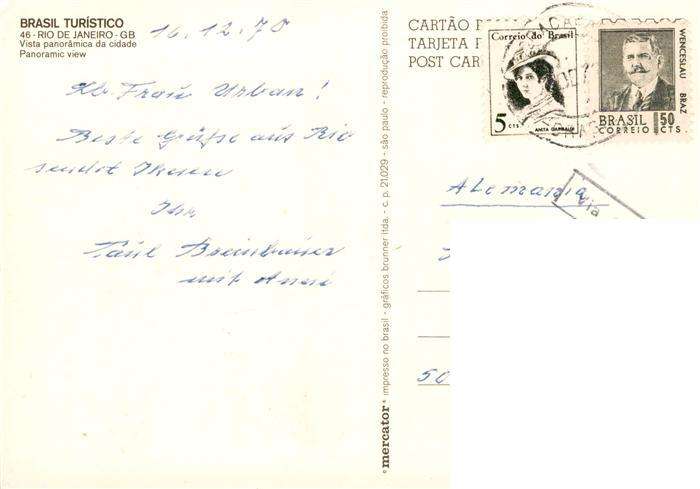 BRASIL TURÍSTICO
46 - RIO DE JANEIRO - GB
Vista panorâmica da cidade
Panoramic view
16.12.70
Lb. Frau Urban!
Beste Grüße aus Rio
sendet Ihnen
Ihr
Paul
mit
mercator® impresso no brasil - gráficos brunner ltda. - c. p. 21.029 - são paulo - reprodução proibida
CARTÃO P
TARJETA P
POST CAR
Correio do Brasil
5 CTS
ANITA GARIBALDI
WENCESLAU BRAZ
BRASIL 50
CORREIO CTS.
ALemania
Via
50